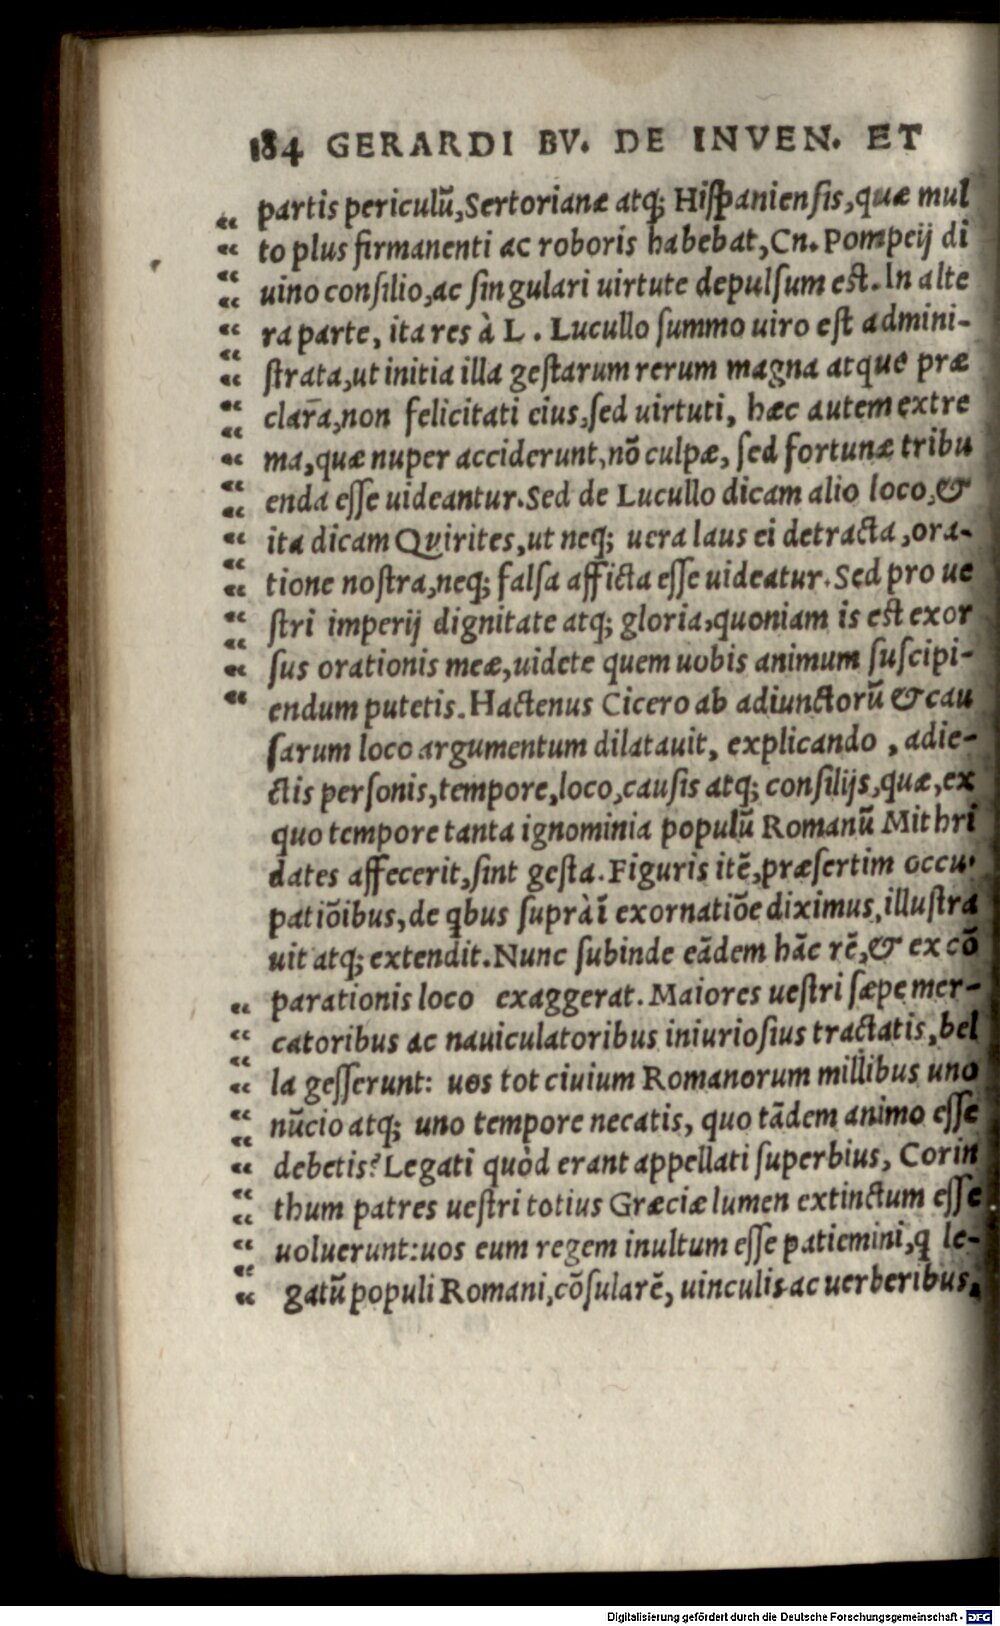 184 GERARDI BV. DE INVEN. ET
„ partis periculū, Sertorianæ atq; Hispaniensis, quæ mul
„ to plus firmanenti ac roboris habebat, Cn. Pompeij di
„ uino consilio, ac singulari uirtute depulsum est. In alte
„ ra parte, ita res à L. Lucullo summo uiro est admini-
„ strata, ut initia illa gestarum rerum magna atque præ
„ clara, non felicitati eius, sed uirtuti, hæc autem extre
„ ma, quæ nuper acciderunt, nō culpæ, sed fortunæ tribu
„ enda esse uideantur. Sed de Lucullo dicam alio loco, &
„ ita dicam Quirites, ut neq; uera laus ei detracta, ora-
„ tione nostra, neq; falsa afficta esse uideatur. Sed pro ue
„ stri imperij dignitate atq; gloria, quoniam is est exor
„ sus orationis meæ, uidete quem uobis animum suscipi-
„ endum putetis. Hactenus Cicero ab adiunctorū & cau
sarum loco argumentum dilatauit, explicando, adie-
ctis personis, tempore, loco, causis atq; consilijs, quæ, ex
quo tempore tanta ignominia populū Romanū Mithri
dates affecerit, sint gesta. Figuris itē, præsertim occu-
patiōibus, de qbus suprà ī exornatiōe diximus, illustra
uit atq; extendit. Nunc subinde eādem hāc rē, & ex cō
„ parationis loco exaggerat. Maiores uestri sæpe mer-
„ catoribus ac nauiculatoribus iniuriosius tractatis, bel
„ la gesserunt: uos tot ciuium Romanorum millibus uno
„ nūcio atq; uno tempore necatis, quo tādem animo esse
„ debetis? Legati quòd erant appellati superbius, Corin
„ thum patres uestri totius Græciæ lumen extinctum esse
„ uoluerunt: uos eum regem inultum esse patiemini, q le-
„ gatū populi Romani, cōsularē, uinculis ac uerberibus,
Digitalisierung gefördert durch die Deutsche Forschungsgemeinschaft - DFG